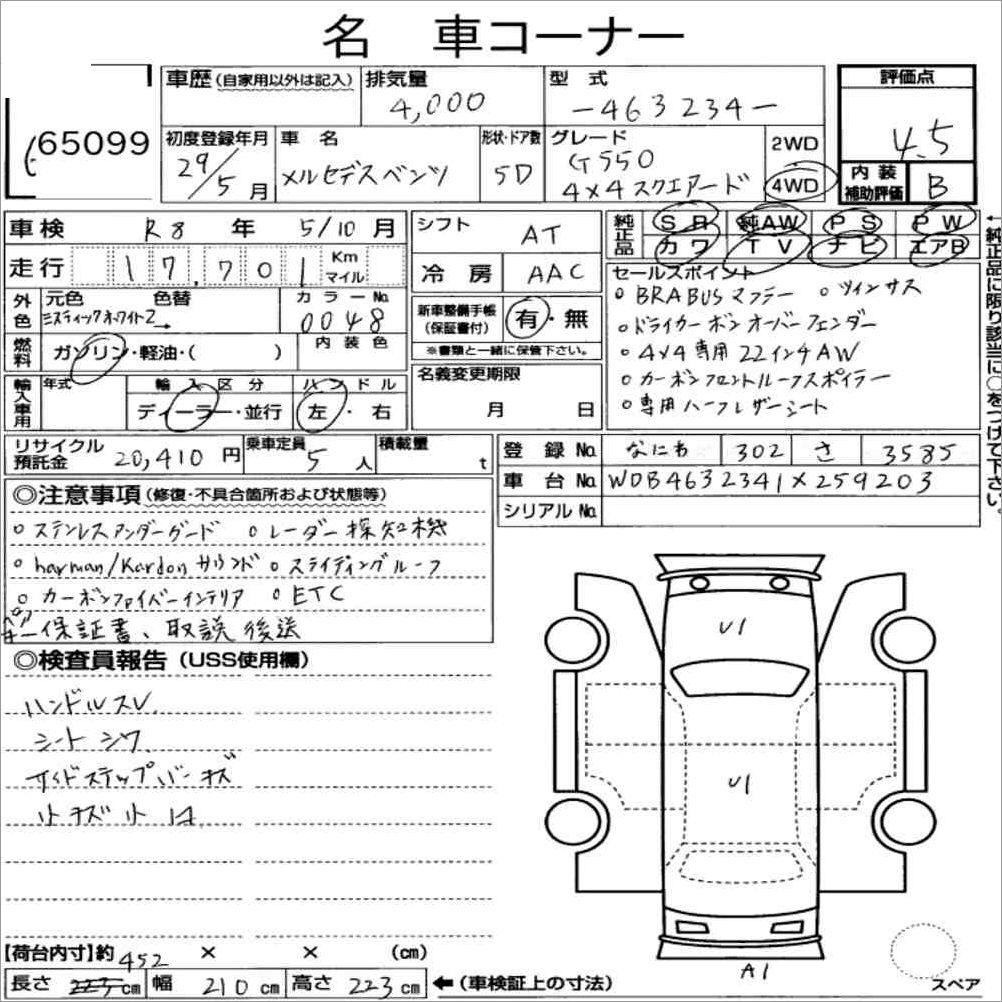 名 車コーナー
65099
車歴(自家用以外は記入) 排気量 4,000 型 式 -463234-
評価点 4.5
初度登録年月 29/5月 車 名 メルセデスベンツ 形状・ドア数 5D グレード G550 4×4スクエアード 2WD 4WD
内装補助評価 B
車検 R8 年 5/10 月
走行 17,701 Km マイル
シフト AT
冷房 AAC
純正品 SR 純AW PS PW
カワ TV ナビ エアB
外色 元色 色替 カラーNo.
ミスティックホワイト2 → 0048
燃料 ガソリン・軽油・( ) 内装色
新車整備手帳(保証書付) 有・無
※書類と一緒に保管下さい。
輸入車用 年式 輸入区分 ディーラー・並行 ハンドル 左・右
名義変更期限 月 日
セールスポイント
○BRABUSマフラー ○ツインサス
○ドライカーボンオーバーフェンダー
○4×4専用22インチAW
○カーボンフロントルーフスポイラー
○専用ハーフレザーシート
←純正品に限り該当に○をつけて下さい。
リサイクル預託金 20,410円 乗車定員 5人 積載量 t
登録No. なにわ 302 さ 3585
車台No. WDB4632341×259203
シリアルNo.
◎注意事項(修復・不具合箇所および状態等)
○ステンレスアンダーガード ○レーダー探知機
○harman/Kardonサウンド ○スライディングルーフ
○カーボンファイバーインテリア ○ETC
スペアキー保証書、取説後送
◎検査員報告(USS使用欄)
ハンドルスレ
シートシワ
サイドステップバーキズ
小キズ小凹
U1
U1
A1
【荷台内寸】約 × × (cm)
長さ 223 452 cm 幅 210cm 高さ 223cm ←(車検証上の寸法)
スペア